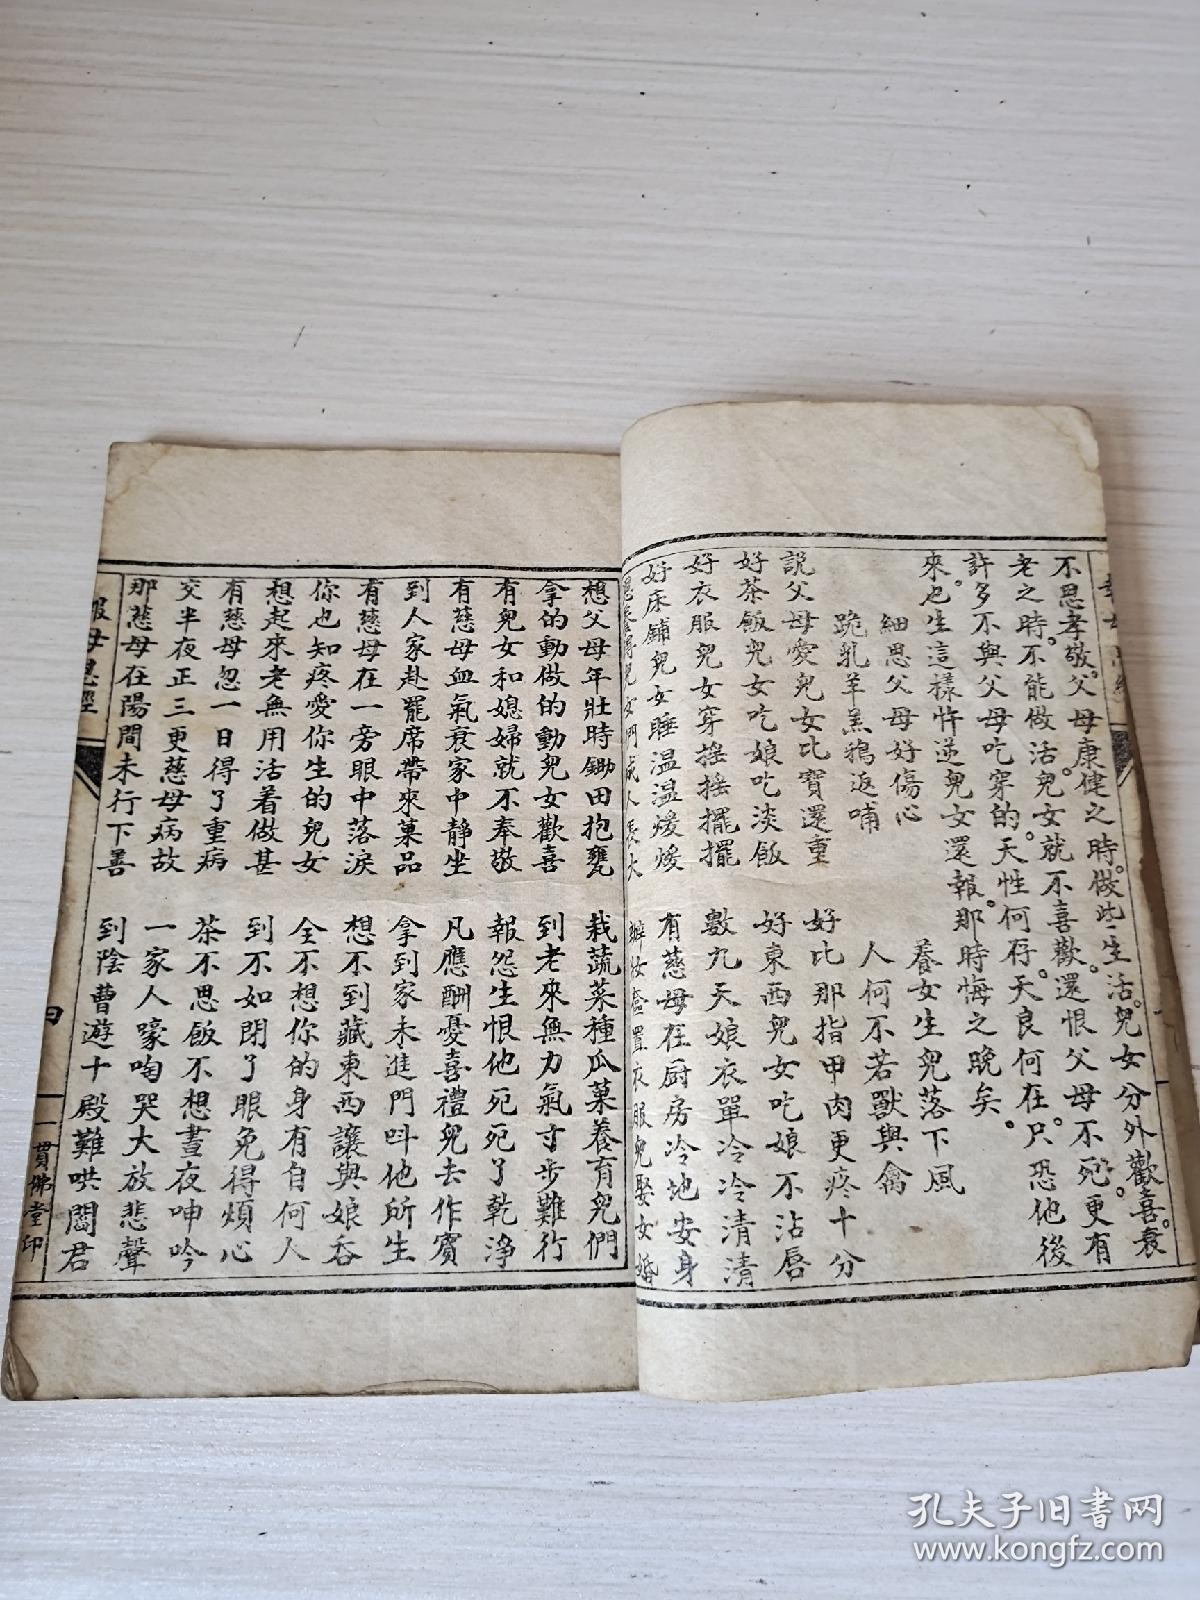 不思孝敬。父母康健之時。做些生活。兒女分外歡喜。衰
老之時。不能做活。兒女就不喜歡。還恨父母不死。更有
許多不與父母吃穿的。天性何存。天良何在。只恐他後
來。也生這樣忤逆兒女還報。那時悔之晚矣。
細思父母好傷心 養女生兒落下風
跪乳羊羔鴉返哺 人何不若獸與禽
說父母愛兒女比寶還重 好比那指甲肉更疼十分
好茶飯兒女吃娘吃淡飯 好東西兒女吃娘不沾唇
好衣服兒女穿搖搖擺擺 數九天娘衣單冷冷清清
好床鋪兒女睡温温煖煖 有慈母在厨房冷地安身
兒女們成人長大 辦妝奩置衣服兒娶女婚
想父母年壯時鋤田抱甕 栽蔬菜種瓜菓養育兒們
拿的動做的動兒女歡喜 到老來無力氣寸步難行
有兒女和媳婦就不奉敬 報怨生恨他死死了乾淨
有慈母血氣衰家中静坐 凡應酬憂喜禮兒去作賓
到人家赴罷席帶來菓品 拿到家未進門呌他所生
有慈母在一旁眼中落淚 想不到藏東西讓與娘吞
你也知疼愛你生的兒女 全不想你的身有自何人
想起來老無用活着做甚 到不如閉了眼免得煩心
有慈母忽一日得了重病 茶不思飯不想晝夜呻吟
交半夜正三更慈母病故 一家人嚎啕哭大放悲聲
那慈母在陽間未行下善 到陰曹遊十殿難哄閻君
報母恩經 四 一貫佛堂印
孔夫子旧书网
www.kongfz.com